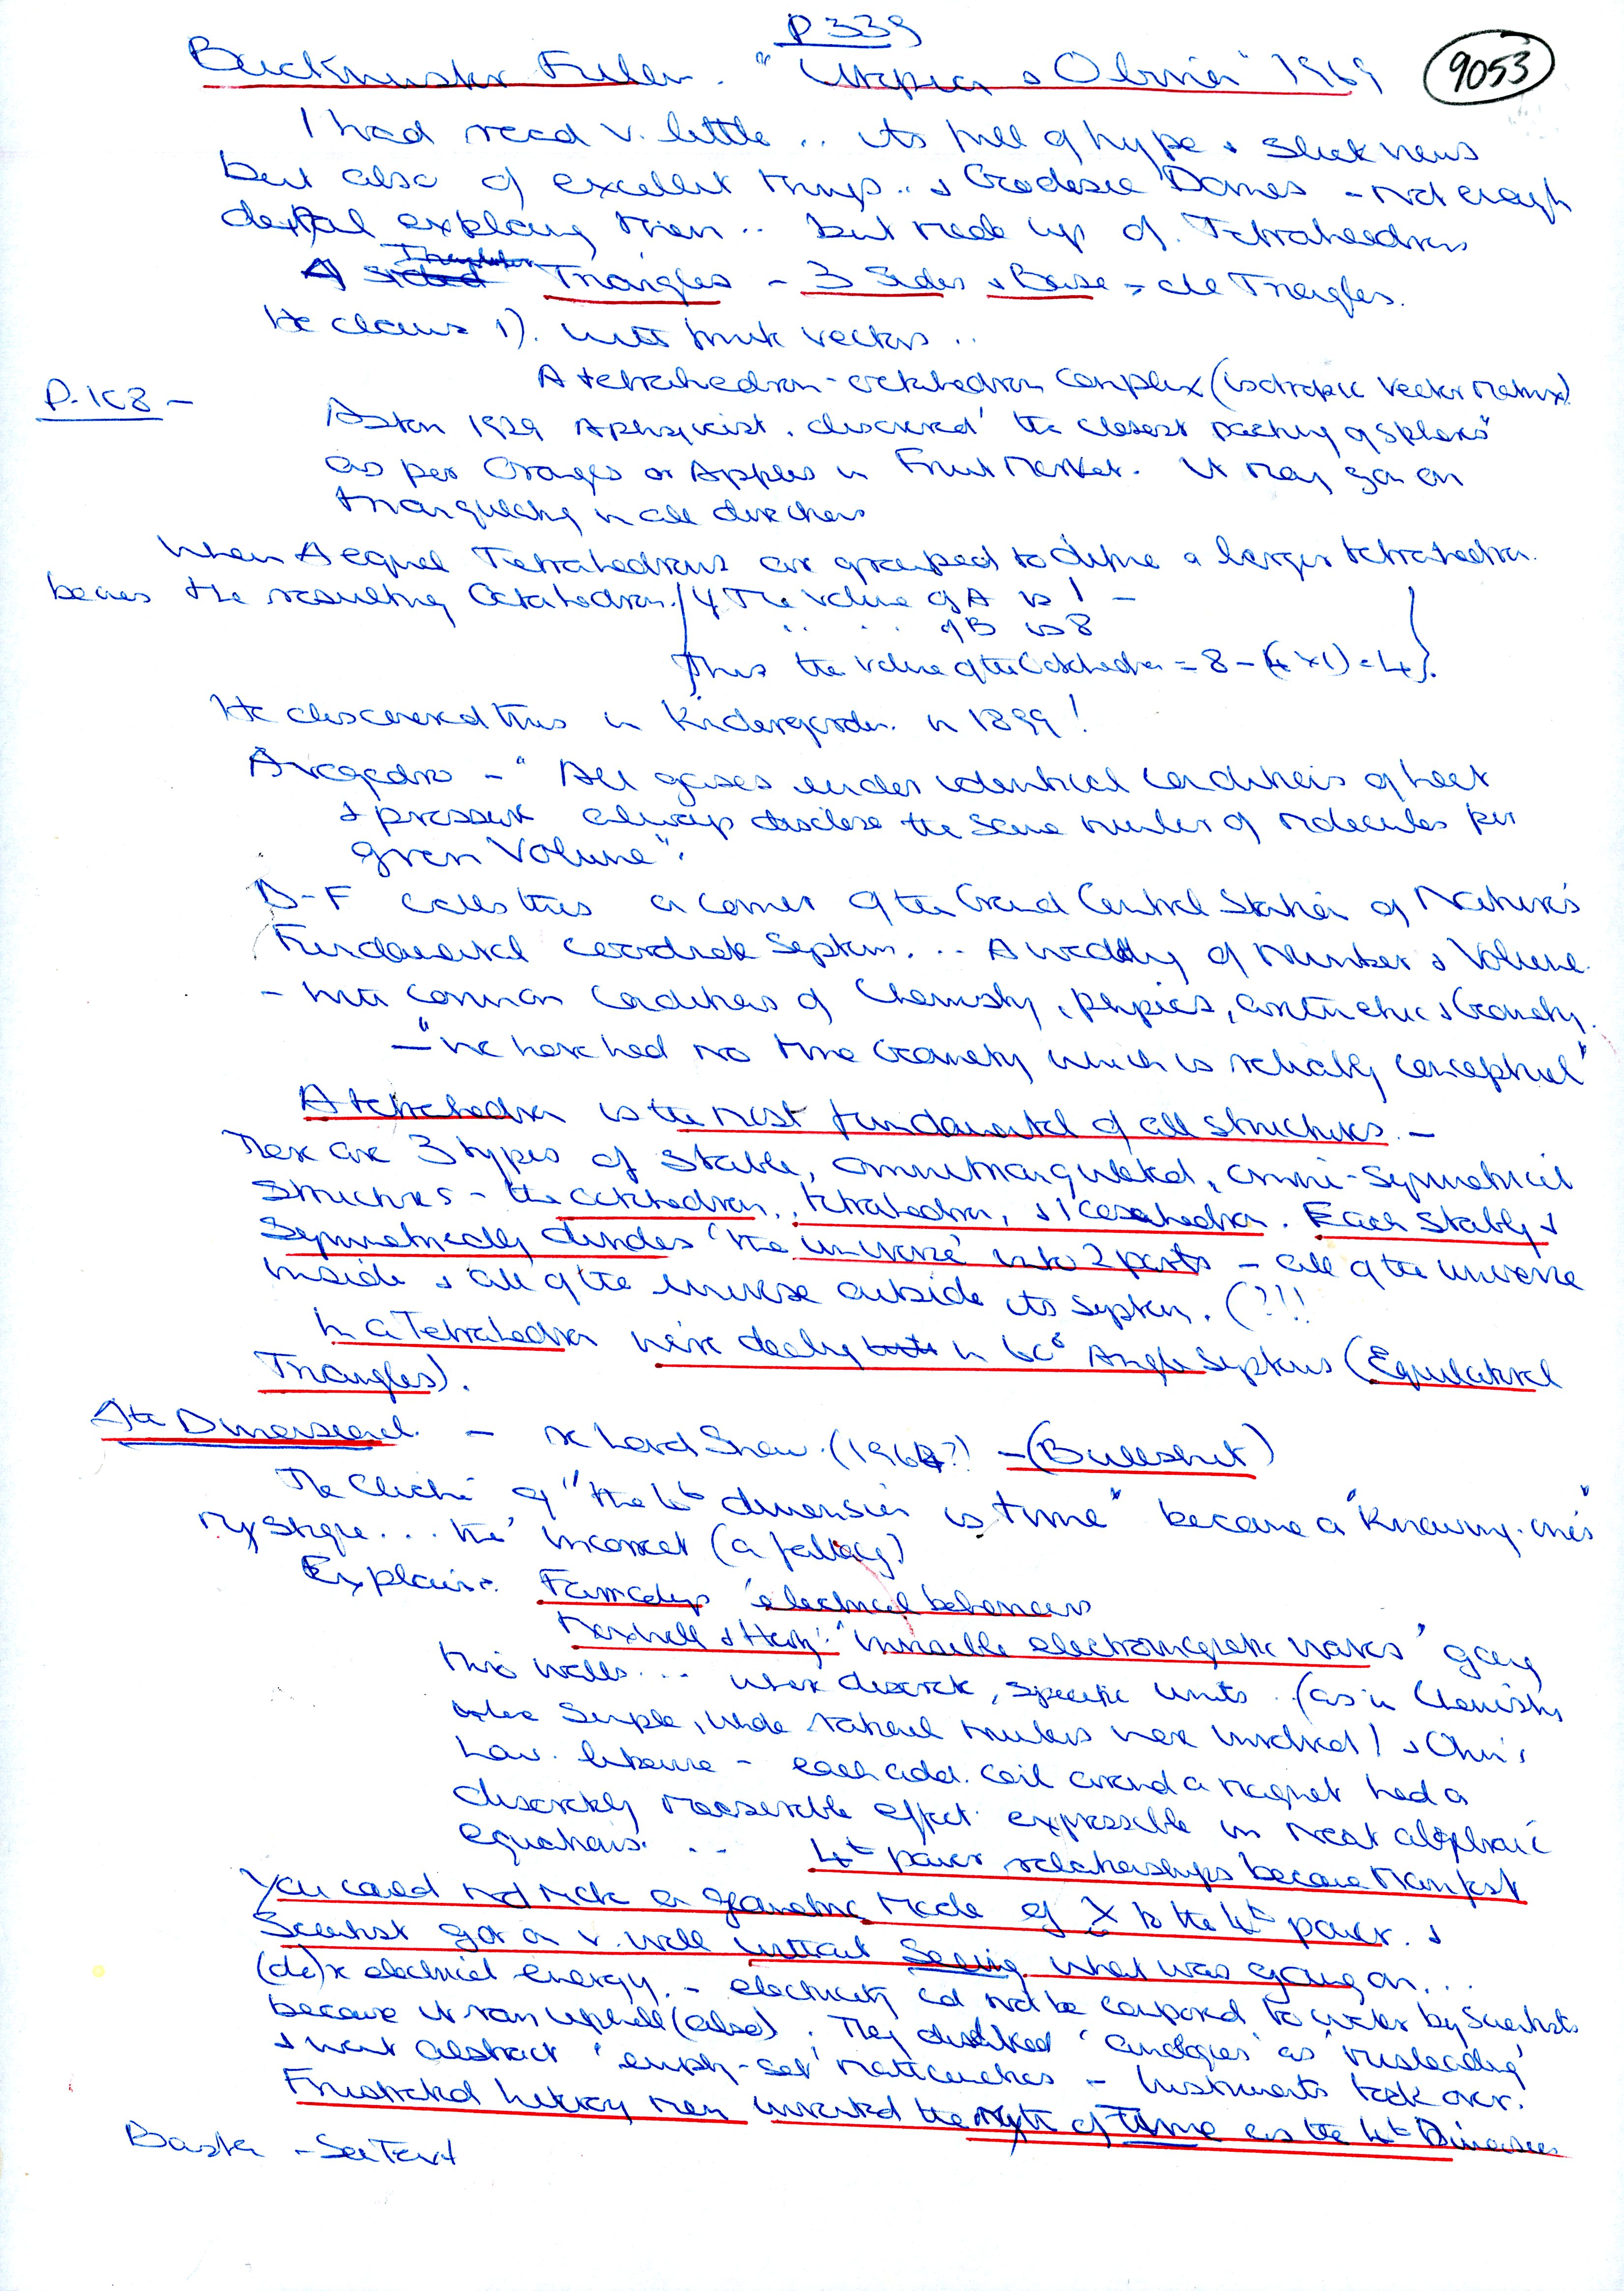 P 339
Buckminster Fuller. "Utopia & Oblivion" 1969
9053
I had read v. little .. its full of hype & sleek news
but also of excellent things .. & Geodesic Domes - not enough
detail explaing them .. but made up of Tetrahedrons
Triangles - 3 Sides & Base = all Triangles.
He claims 1). with vectors ..
A tetrahedron-octahedron complex (isotropic vector matrix)
P. 168 -
Aston 1929 A physicist. discovered 'the closest packing of spheres"
as per Oranges or Apples in Fruit Market. It may go on
triangulating in all directions
When 4 equal Tetrahedrons are grouped to define a larger tetrahedron.
the resulting Octahedron. / If the value of A is 1 -
" " of B is 8
Thus the value of the Octahedron = 8 - (4 x 1) = 4 }.
He discovered this in Kindergarden. in 1899!
Avogadro - " All gases under identical conditions of heat
& pressure always disclose the same number of molecules per
given Volume".
B-F calls this a corner of the Grand Central Station of Nature's
Fundamental coordinate System. .. A wedding of Number & Volume
- with common conditions of Chemistry, physics, arithmetic & Geometry.
- "we have had no true Geometry which is reliably conceptual"
A tetrahedron is the most fundamental of all structures. -
There are 3 types of stable, omnitriangulated, omni-symmetrical
structures - the octahedron, tetrahedron, & Icosahedron. Each stably &
symmetrically divides 'the universe' into 2 parts - all of the universe
inside & all of the universe outside its system. (?!!
In a Tetrahedron we're dealing in 60° Angle Systems (Equilateral
Triangles).
4th Dimensional. - re Lord Snow. (1964?) - (Bullshit)
The Cliché of "the 4th dimension is time" became a "Knowing-one's"
mystique ... the' incorrect (a fallacy)
Explains. Faraday's 'electrical behaviours
Maxwell & Hertz: "invisible electromagnetic waves" going
thro walls ... were discrete, specific units .. (as in Chemistry
simple, whole rational numbers were involved) & Ohm's
Law. likewise - each add. coil around a magnet had a
discretely measurable effect expressible in neat algebraic
equations. .. 4th power relationships became manifest
You could not make a geometric model of X to the 4th power. &
Scientist got on v. well without Seeing what was going on...
(de) re electrical energy. - electricity cd not be compared to water by Scientists
because it ran uphill (also). They disliked 'analogies' as 'misleading'
& went abstract 'empty-set' mathematics - Instruments took over.
Frustrated literary men invented the Myth of Time as the 4th Dimension
- See Text